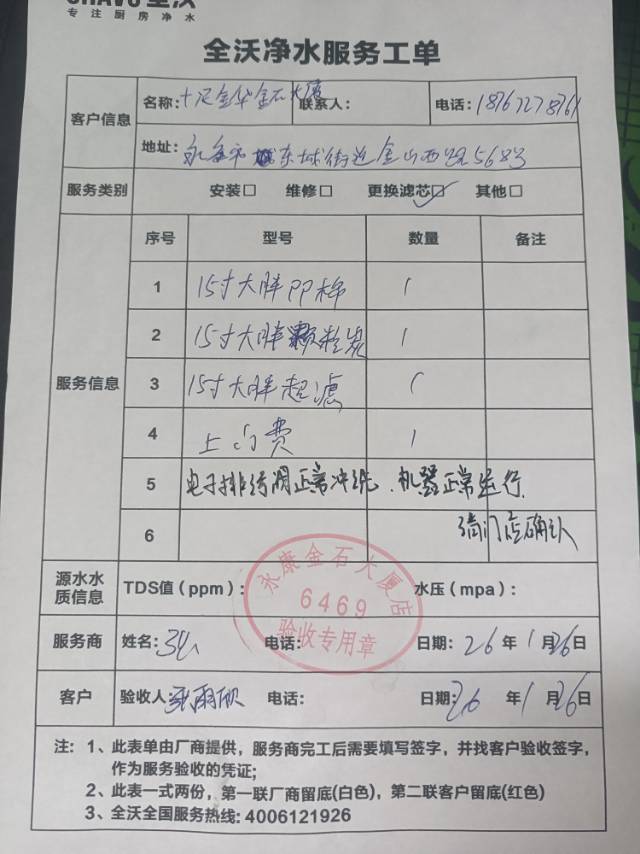 专注厨房净水
全沃净水服务工单
客户信息
名称：十足金华金石大厦 联系人： 电话：18767278761
地址：永康市城东城街道金山西路568号
服务类别 安装□ 维修□ 更换滤芯☑ 其他□
服务信息
序号 型号 数量 备注
1 15寸大胖PP棉 1
2 15寸大胖颗粒炭 1
3 15寸大胖超滤 1
4 上门费 1
5 电子排污阀正常冲洗、机器正常运行
6 请门店确认
源水水质信息 TDS值（ppm）： 水压（mpa）：
永康金石大厦店
6469
验收专用章
服务商 姓名： 电话： 日期：26年1月26日
客户 验收人：张雨欣 电话： 日期：26年1月26日
注：1、此表单由厂商提供，服务商完工后需要填写签字，并找客户验收签字，
作为服务验收的凭证；
2、此表一式两份，第一联厂商留底(白色)，第二联客户留底(红色)
3、全沃全国服务热线：4006121926